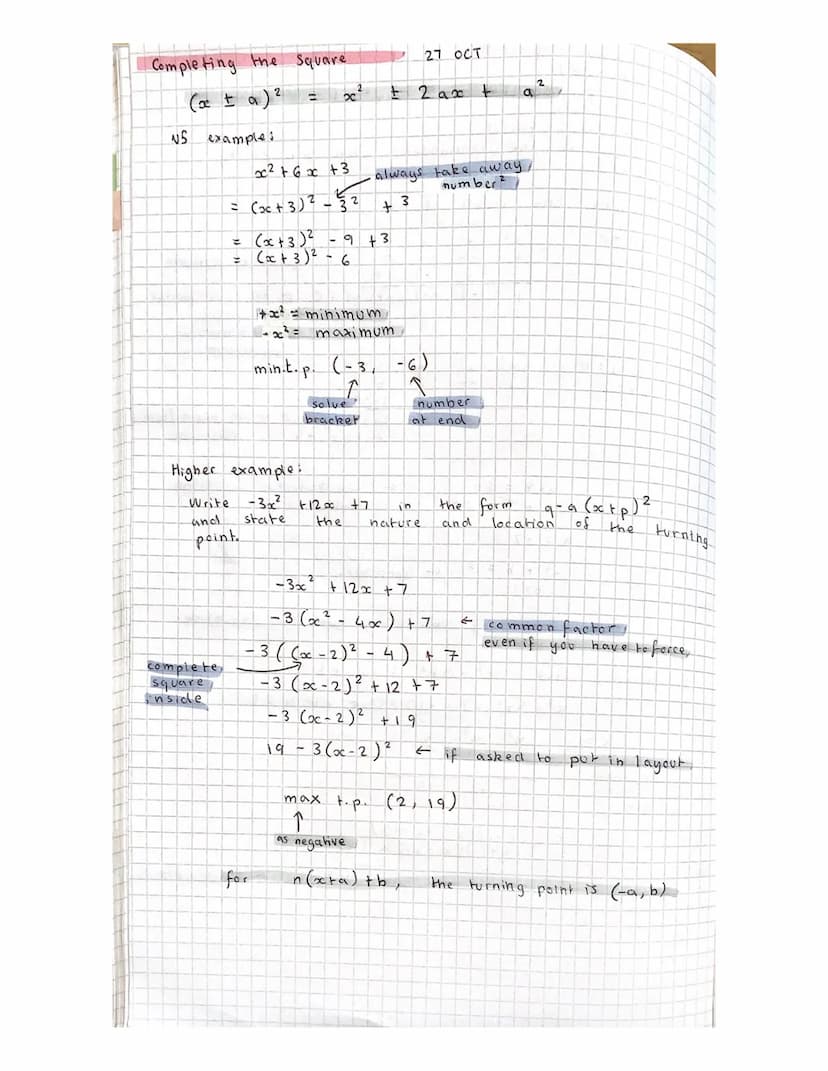 Completing the Square 27 OCT
(x ± a)² = x² ± 2ax + a²
N5 example:
x² + 6x + 3
always take away
number²
= (x+3)² - 3² + 3
= (x+3)² - 9 + 3
= (x+3)² - 6
+x² = minimum
-x² = maximum
min.t.p. (-3, -6)
solve bracket
number at end
Higher example:
Write -3x² + 12x + 7 in the form q-a(x+p)²
and state the nature and location of the turning
point.
-3x² + 12x + 7
-3(x² - 4x) + 7 ← common factor,
even if you have to force
-3((x-2)² - 4) + 7
complete
square
inside
-3(x-2)² + 12 + 7
-3(x-2)² + 19
19 - 3(x-2)² ← if asked to put in layout
max t.p. (2, 19)
as negative
for n(x+a)+b, the turning point is (-a, b)